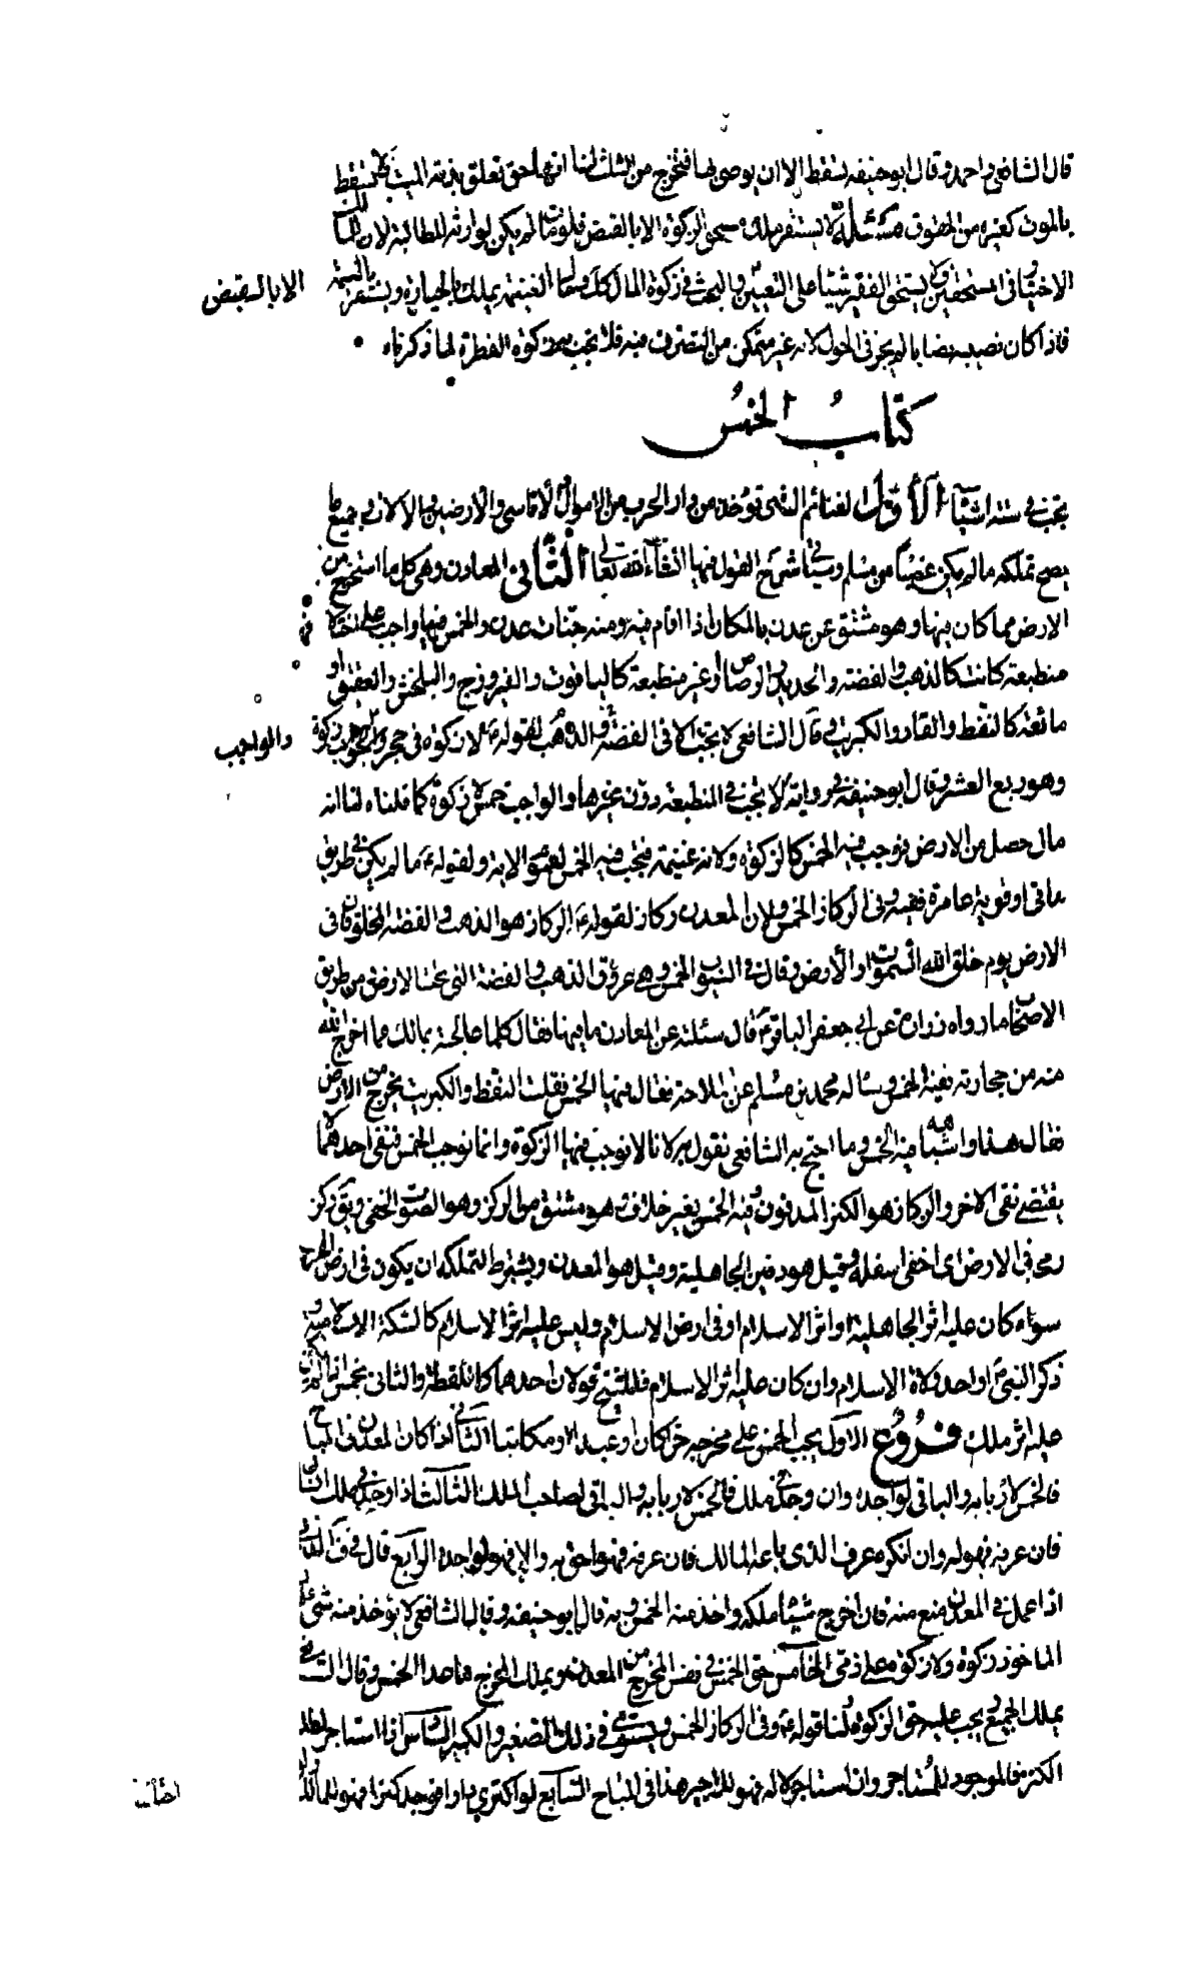 قال الشافعي واحمد وقال ابو حنيفه تسقط الا ان يوصي بها فتخرج من الثلث لنا انها حق تعلق بذمة الميت فلم تسقط
بالموت كغيره من الحقوق مسئلة لا يستقر ملك مستحق الزكوة الا بالقبض فلو مات لم يكن لوارثه المطالبة لان للمالك
الاختيار في المستحقين ولا يستحق الفقير شيئا على التعيين والبحث في زكوة المال كذلك اما الغنيمة يملك بالحيازة ويستقر بالقسمة
الا بالقبض
فاذا كان نصيبه نصابا لم يجز في الحول لانه غير متمكن من التصرف فيه فلا تجب زكوة الفطرة لما ذكرناه
كتاب الخمس
يجب في ستة اشياء الاول الغنائم التي توخذ من دار الحرب من الاموال والاناسي والارضين والآلات وجميع ما
يصح تملكه ما لم يكن غصبا من مسلم وسيأتي شرح القول فيها انشاء الله تعالى الثاني المعادن وهي كل ما استخرج من
الارض مما كان فيها وهو مشتق من عدن بالمكان اذا اقام فيه ومنه جنات عدن والخمس فيها واجب على اختلافها
منطبعة كانت كالذهب والفضة والحديد والرصاص او غير منطبعة كالياقوت والفيروزج والبلخش والعقيق او
مائعة كالنفط والقار والكبريت وقال الشافعي لا يجب الا في الفضة والذهب لقوله ع لا زكوة في حجر والواجب زكوة
والواجب
وهو ربع العشر وقال ابو حنيفة في رواية لا يجب في المنطبعة دون غيرها والواجب خمس لا زكوة كما قلناه لنا انه
مال حصل من الارض فوجب فيه الخمس كالزكوة ولانه غنيمة فيجب فيه الخمس لعموم الاية ولقوله ع ما لم يكن في طريق
ماتي او قرية عامرة ففيه وفي الركاز الخمس ولان المعدن ركاز لقوله ع الركاز هو الذهب والفضة المخلوقان في
الارض يوم خلق الله السموات والارض وقال في السيوب الخمس وهي عروق الذهب والفضة التي تحت الارض ومن طريق
الاصحاب ما رواه زرارة عن ابي جعفر الباقر ع قال سئلته عن المعادن ما فيها فقال كلما عالجته بمالك مما اخرج الله
منه من حجارته ففيه الخمس وساله محمد بن مسلم عن الملاحة فقال فيها الخمس فقلت النفط والكبريت يخرج من الارض
فقال هذا واشباهه فيه الخمس وما احتج به الشافعي نقول به لانا لا نوجب فيها الزكوة وانما نوجب الخمس فنفي احدهما لا
يقتضي نفي الاخر والركاز هو الكنز المدفون وفيه الخمس بغير خلاف وهو مشتق من الركز وهو الصوت الخفي ويق ركز
رمحه في الارض اي اخفى اسفله وقيل هو دفين الجاهلية وقيل هو المعدن ويشترط لتملكه ان يكون في ارض الحرب
سواء كان عليه اثر الجاهلية او اثر الاسلام او في ارض الاسلام وليس عليه اثر الاسلام كالسكة الاسلامية و
ذكر النبي ص او احد ولاة الاسلام وان كان عليه اثر الاسلام فللشيخ قولان احدهما كاللقطة والثاني يخمس اذا لم يكن
عليه اثر ملك فروع الاول يجب الخمس على مخرجه حرا كان او عبدا او مكاتبا الثاني اذا كان المعدن في المباح
فالخمس لاربابه والباقي لواجده وان وجد في ملك فالخمس لاربابه والباقي لصاحب الملك الثالث اذا وجد في ملك انسان
فان عرفه فهو له وان انكره عرف الذي باعه المالك فان عرفه فهو احق به والا فهو لواجده الرابع قال في ف الذمي
اذا عمل في المعدن منع منه فان اخرج شيئا ملكه واخذ منه الخمس وبه قال ابو حنيفة وقال الشافعي لا يؤخذ منه شئ لان
الماخوذ زكوة ولا زكوة على ذمي الخامس حق الخمس في نفس المخرج من المعدن ويملك المخرج ما عدا الخمس وقال الشافعي
يملك الجميع ويجب عليه حق الزكوة لنا قوله ع وفي الركاز الخمس ويستوي في ذلك الصغير والكبير السادس اذا استاجر لطلب
الكنز فالموجود للمستاجر وان استاجر لا له فهو للاجير هذا في المباح السابع لو اكترى دارا فوجد كنزا فهو للمالك ولو
اختلفت